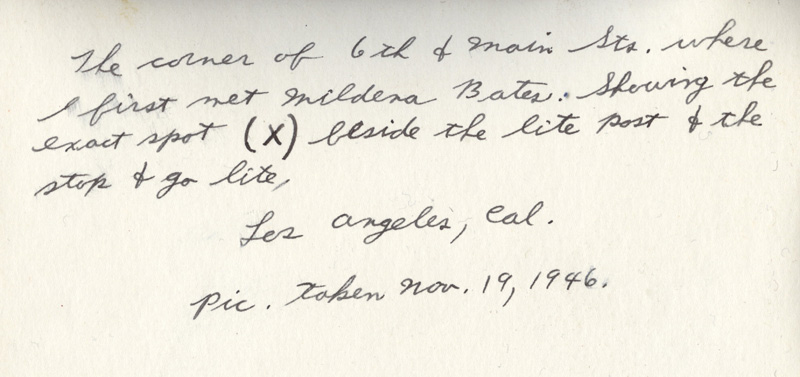 The corner of 6th & Main Sts. where
I first met Mildena Bates. Showing the
exact spot (X) beside the lite post & the
stop & go lite,
Los Angeles, Cal.
Pic. taken Nov. 19, 1946.